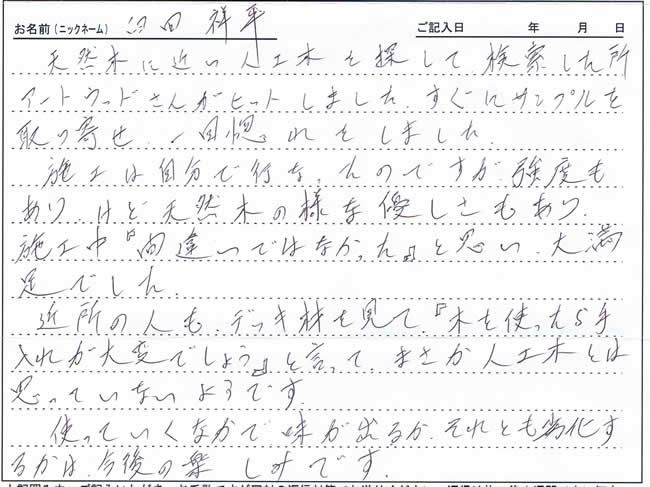 お名前(ニックネーム) 臼田 祥平 ご記入日 年 月 日
天然木に近い人工木を探して検索した所
イートウッドさんがヒットしました。すぐにサンプルを
取り寄せ、一目惚れをしました。
施工は自分で行なったのですが、強度も
あり、けど天然木の様な優しさもあり、
施工中『間違いではなかった』と思い、大満
足でした。
近所の人も、デッキ材を見て、『木を使ったら手
入れが大変でしょう』と言って、まさか人工木とは
思っていないようです。
使っていくなかで味が出るか、それとも劣化す
るかは、今後の楽しみです。